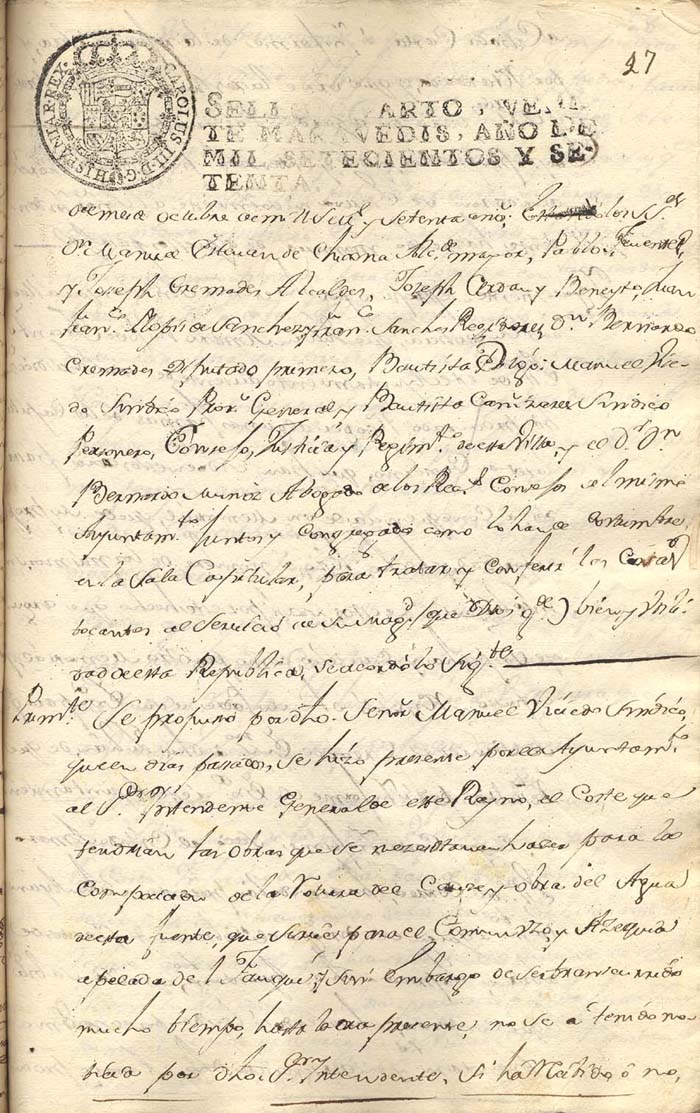 27
CAROLUS III D. G. HISPANIAR. REX.
SELL ARTO, VEIN
TE MARAVEDIS, AÑO DE
MIL SETECIENTOS Y SE
TENTA.
de mes de octubre de mil Setts. y setenta años los SS.es
Dn. Manuel Estevan de Alc.de mayor, Pablo
y Joseph Cremades Alcaldes, Joseph Cerdan y Beneyto, Juan
Fran.co Sanchez y Fran.co Sanches Regidores, Dn. Bernardo
Cremades Diputado primero, Bautista Manuel Vice-
do Sindico Pror. General, y Bautista Cañizares Sindico
Personero, Consejo, Justicia y Regim.to de esta Villa, y el Dr. Dn.
Bernardo Muñoz Abogado de los Rea.s Consejos el mismo
Ayuntam.to Juntos y Congregados como lo han de costumbre
en la Sala Capitular, para tratar y conferir las Cosas
tocantes al Servicio de su Mag.d (que Dios g.de) bien y Utili-
dad de esta Republica, se acordó lo Sig.te
Prim.te Se propuso por dho. Señor Manuel Vicedo Sindico,
que en dias passados, se hizo presente por este Ayuntam.to
al S.or Intendente General de este Reyno, el Coste que
tendrian las Obras que se nezesitavan hacer para la
del Cauze y obra del Agua
de esta fuente, que sirve para el Comun, y Azequia
apelada de l , y sin Embargo de ser transcurrido
mucho tiempo, hasta la ora presente, no se a tenido no-
ticia por dho. S.or Intendente, si ó no,